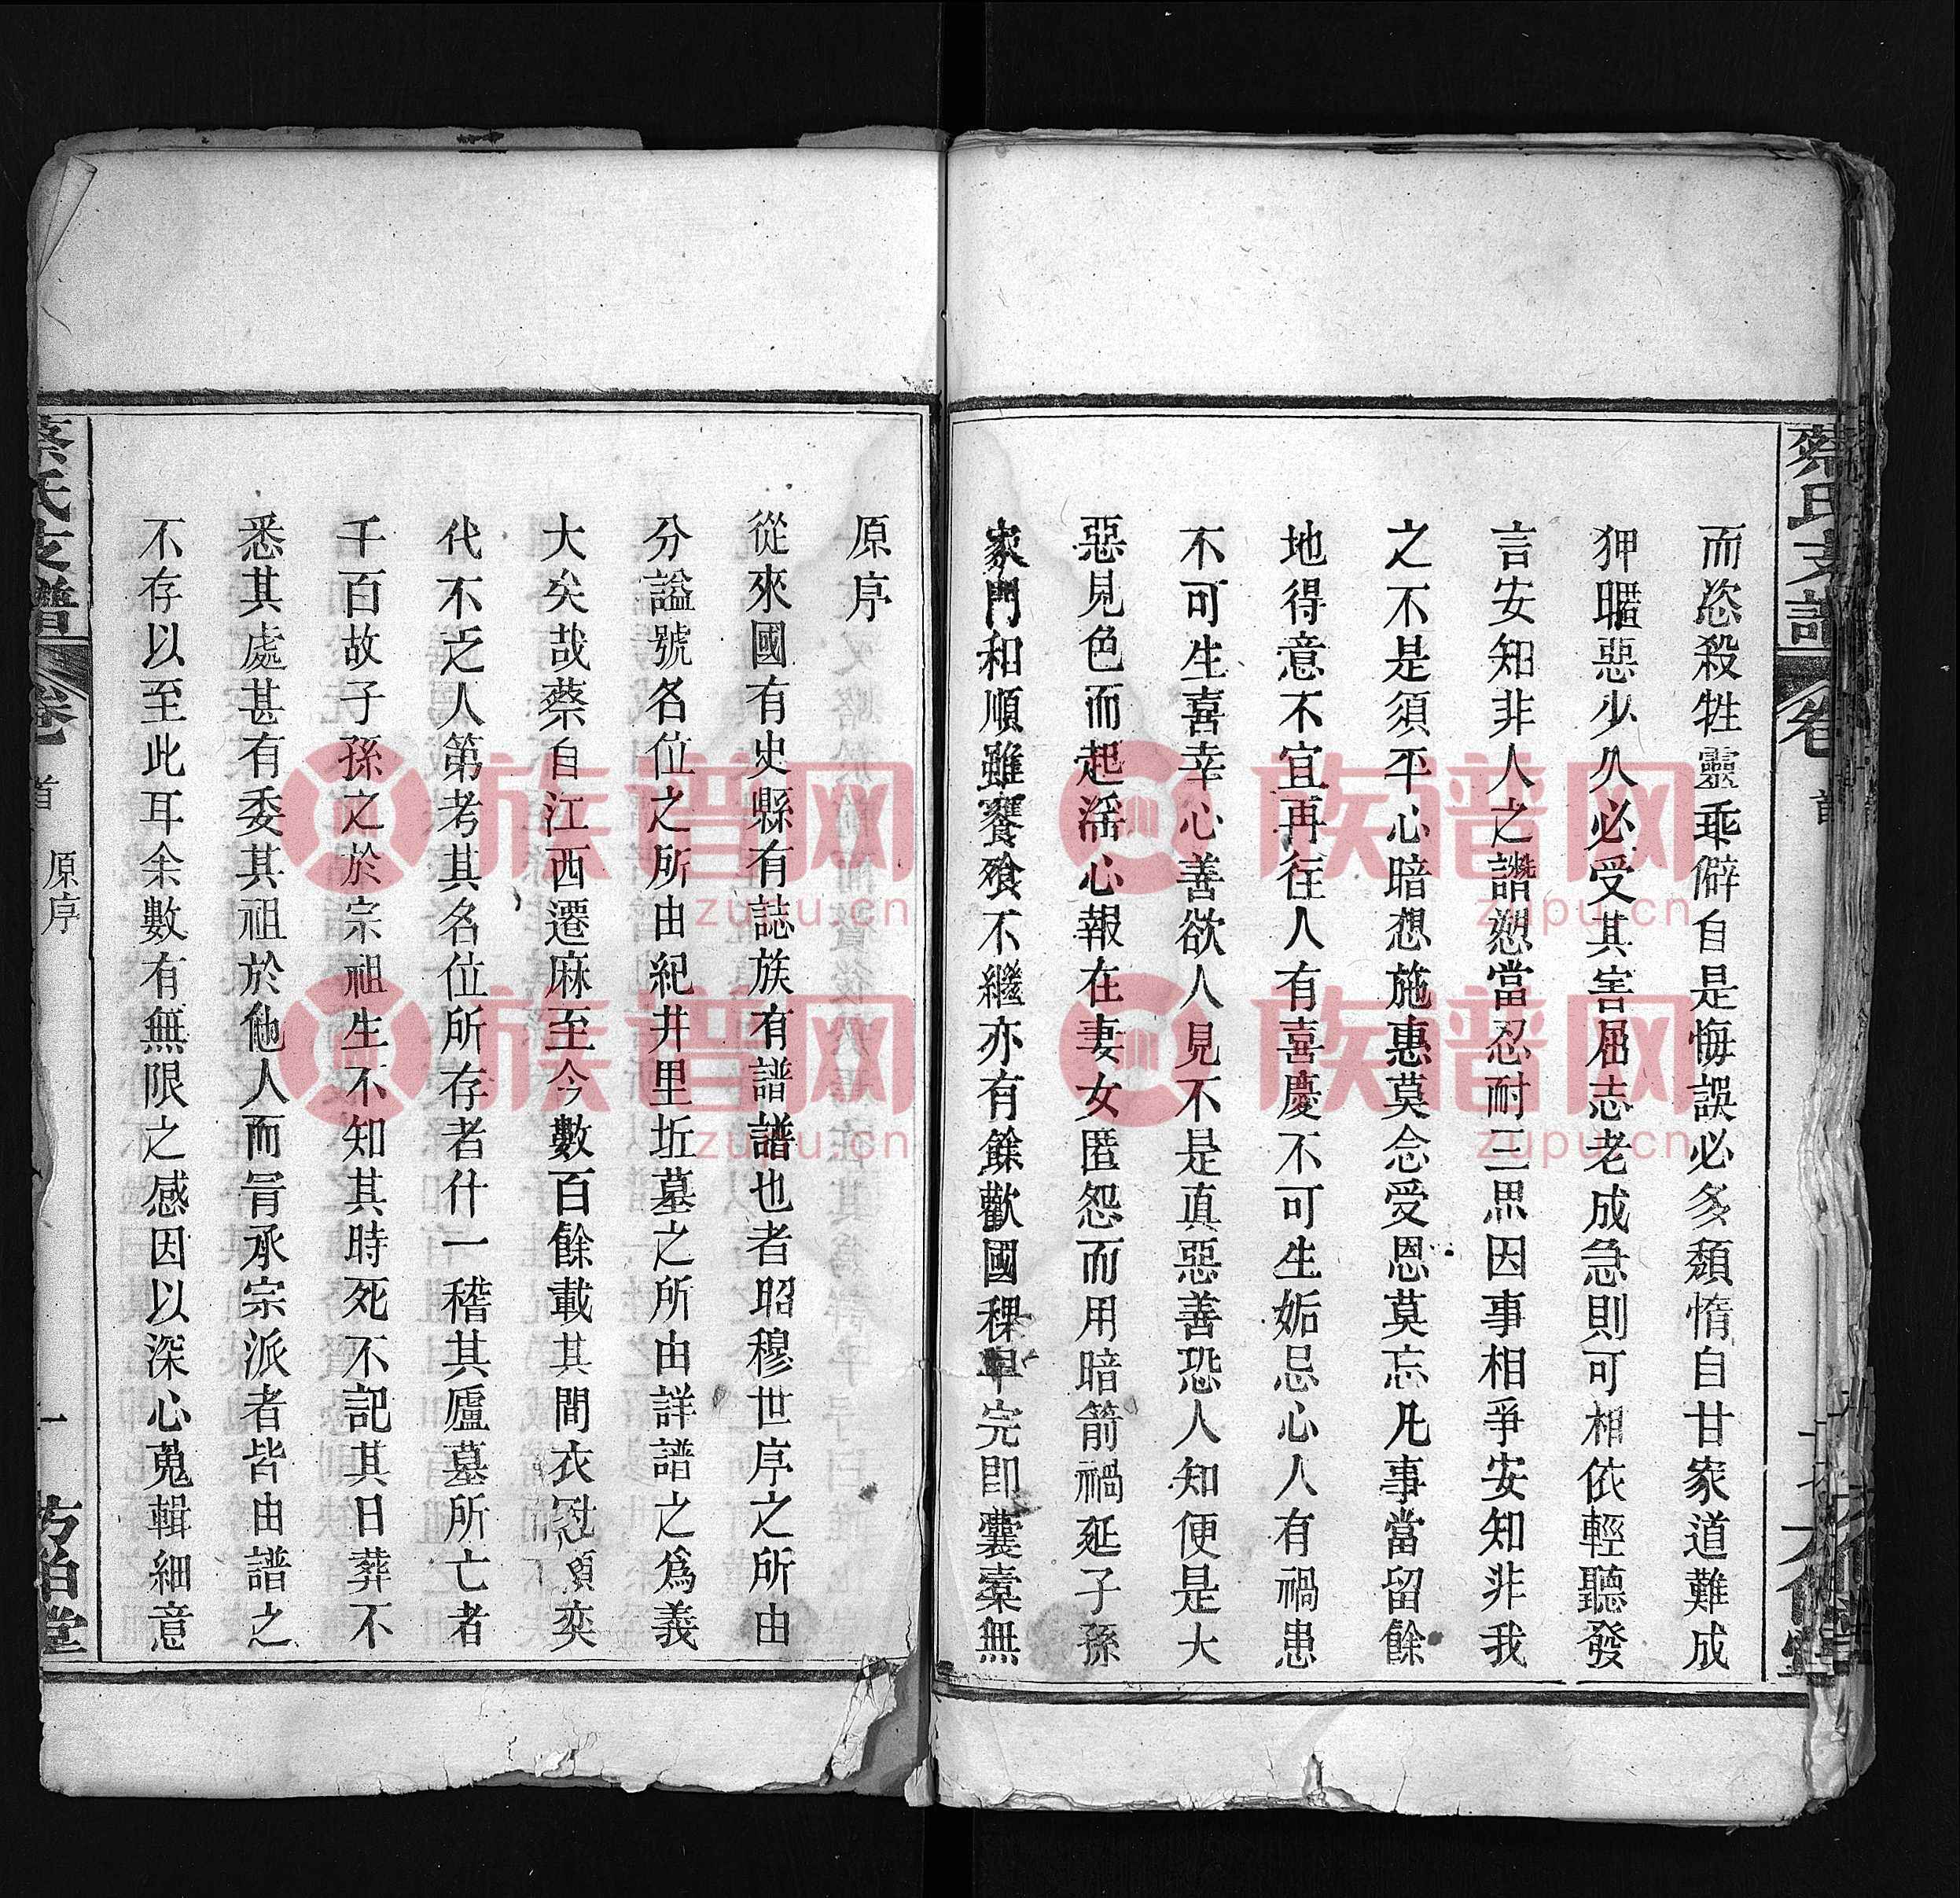 蔡氏支譜
卷
首
而恣殺牲靈乖僻自是悔誤必多頽惰自甘家道難成
狎暱惡少久必受其害屈志老成急則可相依輕聽發
言安知非人之譖愬當忍耐三思因事相爭安知非我
之不是須平心暗想施惠莫念受恩莫忘凡事當留餘
地得意不宜再往人有喜慶不可生妬忌心人有禍患
不可生喜幸心善欲人見不是真惡善恐人知便是大
惡見色而起淫心報在妻女匿怨而用暗箭禍延子孫
家門和順雖饔飧不繼亦有餘歡國稞早完即囊橐無
原序
從來國有史縣有誌族有譜譜也者昭穆世序之所由
分謚號名位之所由紀井里坵墓之所由詳譜之爲義
大矣哉蔡自江西遷麻至今數百餘載其間衣冠頭奕
代不乏人第考其名位所存者什一稽其廬墓所亡者
千百故子孫之於宗祖生不知其時死不記其日葬不
悉其處甚有委其祖於他人而冒承宗派者皆由譜之
不存以至此耳余數有無限之感因以深心蒐輯細意
蔡氏支譜
卷
首
原序
一
堂
族谱网
zupu.cn
族谱网
zupu.cn
族谱网
zupu.cn
族谱网
zupu.cn